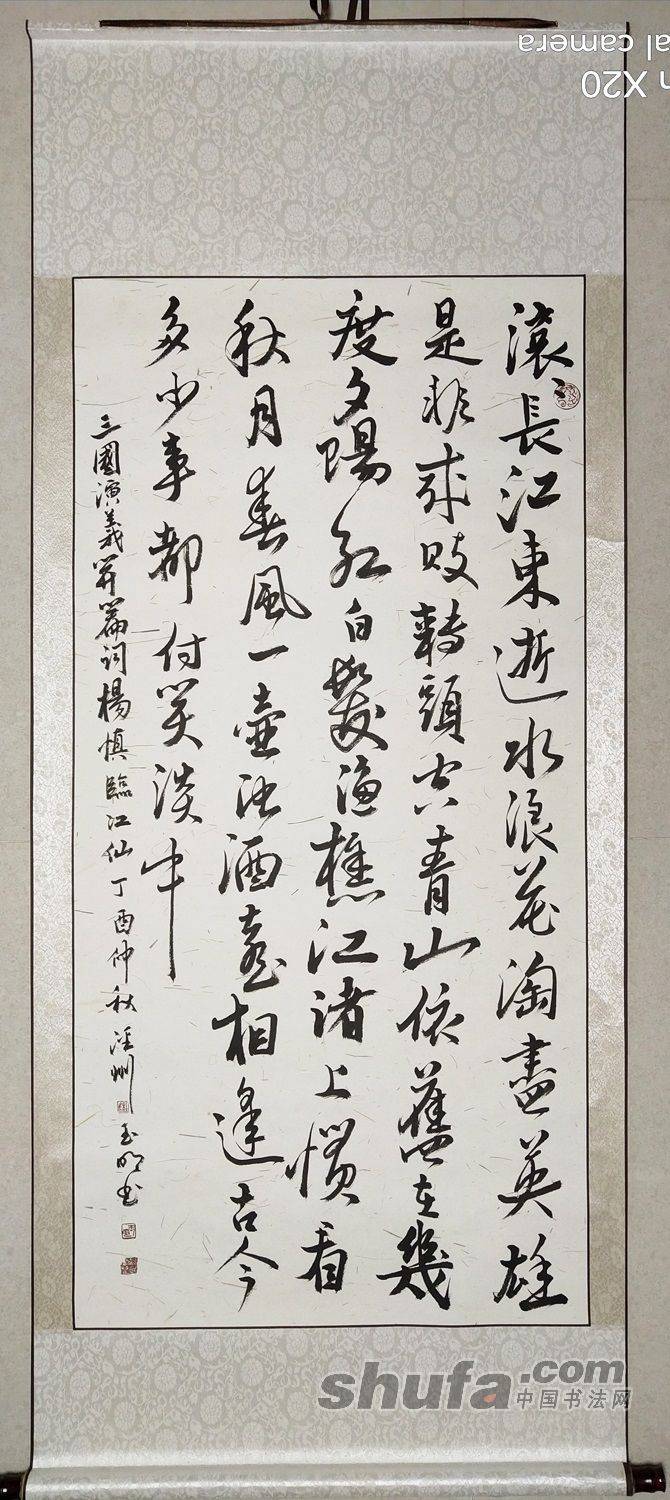 滚〻長江東逝水浪花淘盡英雄
是非成敗轉頭空青山依舊在幾
度夕陽紅白髮漁樵江渚上慣看
秋月春風一壺濁酒喜相逢古今
多少事都付笑談中
三國演義開篇詞楊慎臨江仙丁酉仲秋涇州玉明书
X20
camera
shufa.com
中国书法网